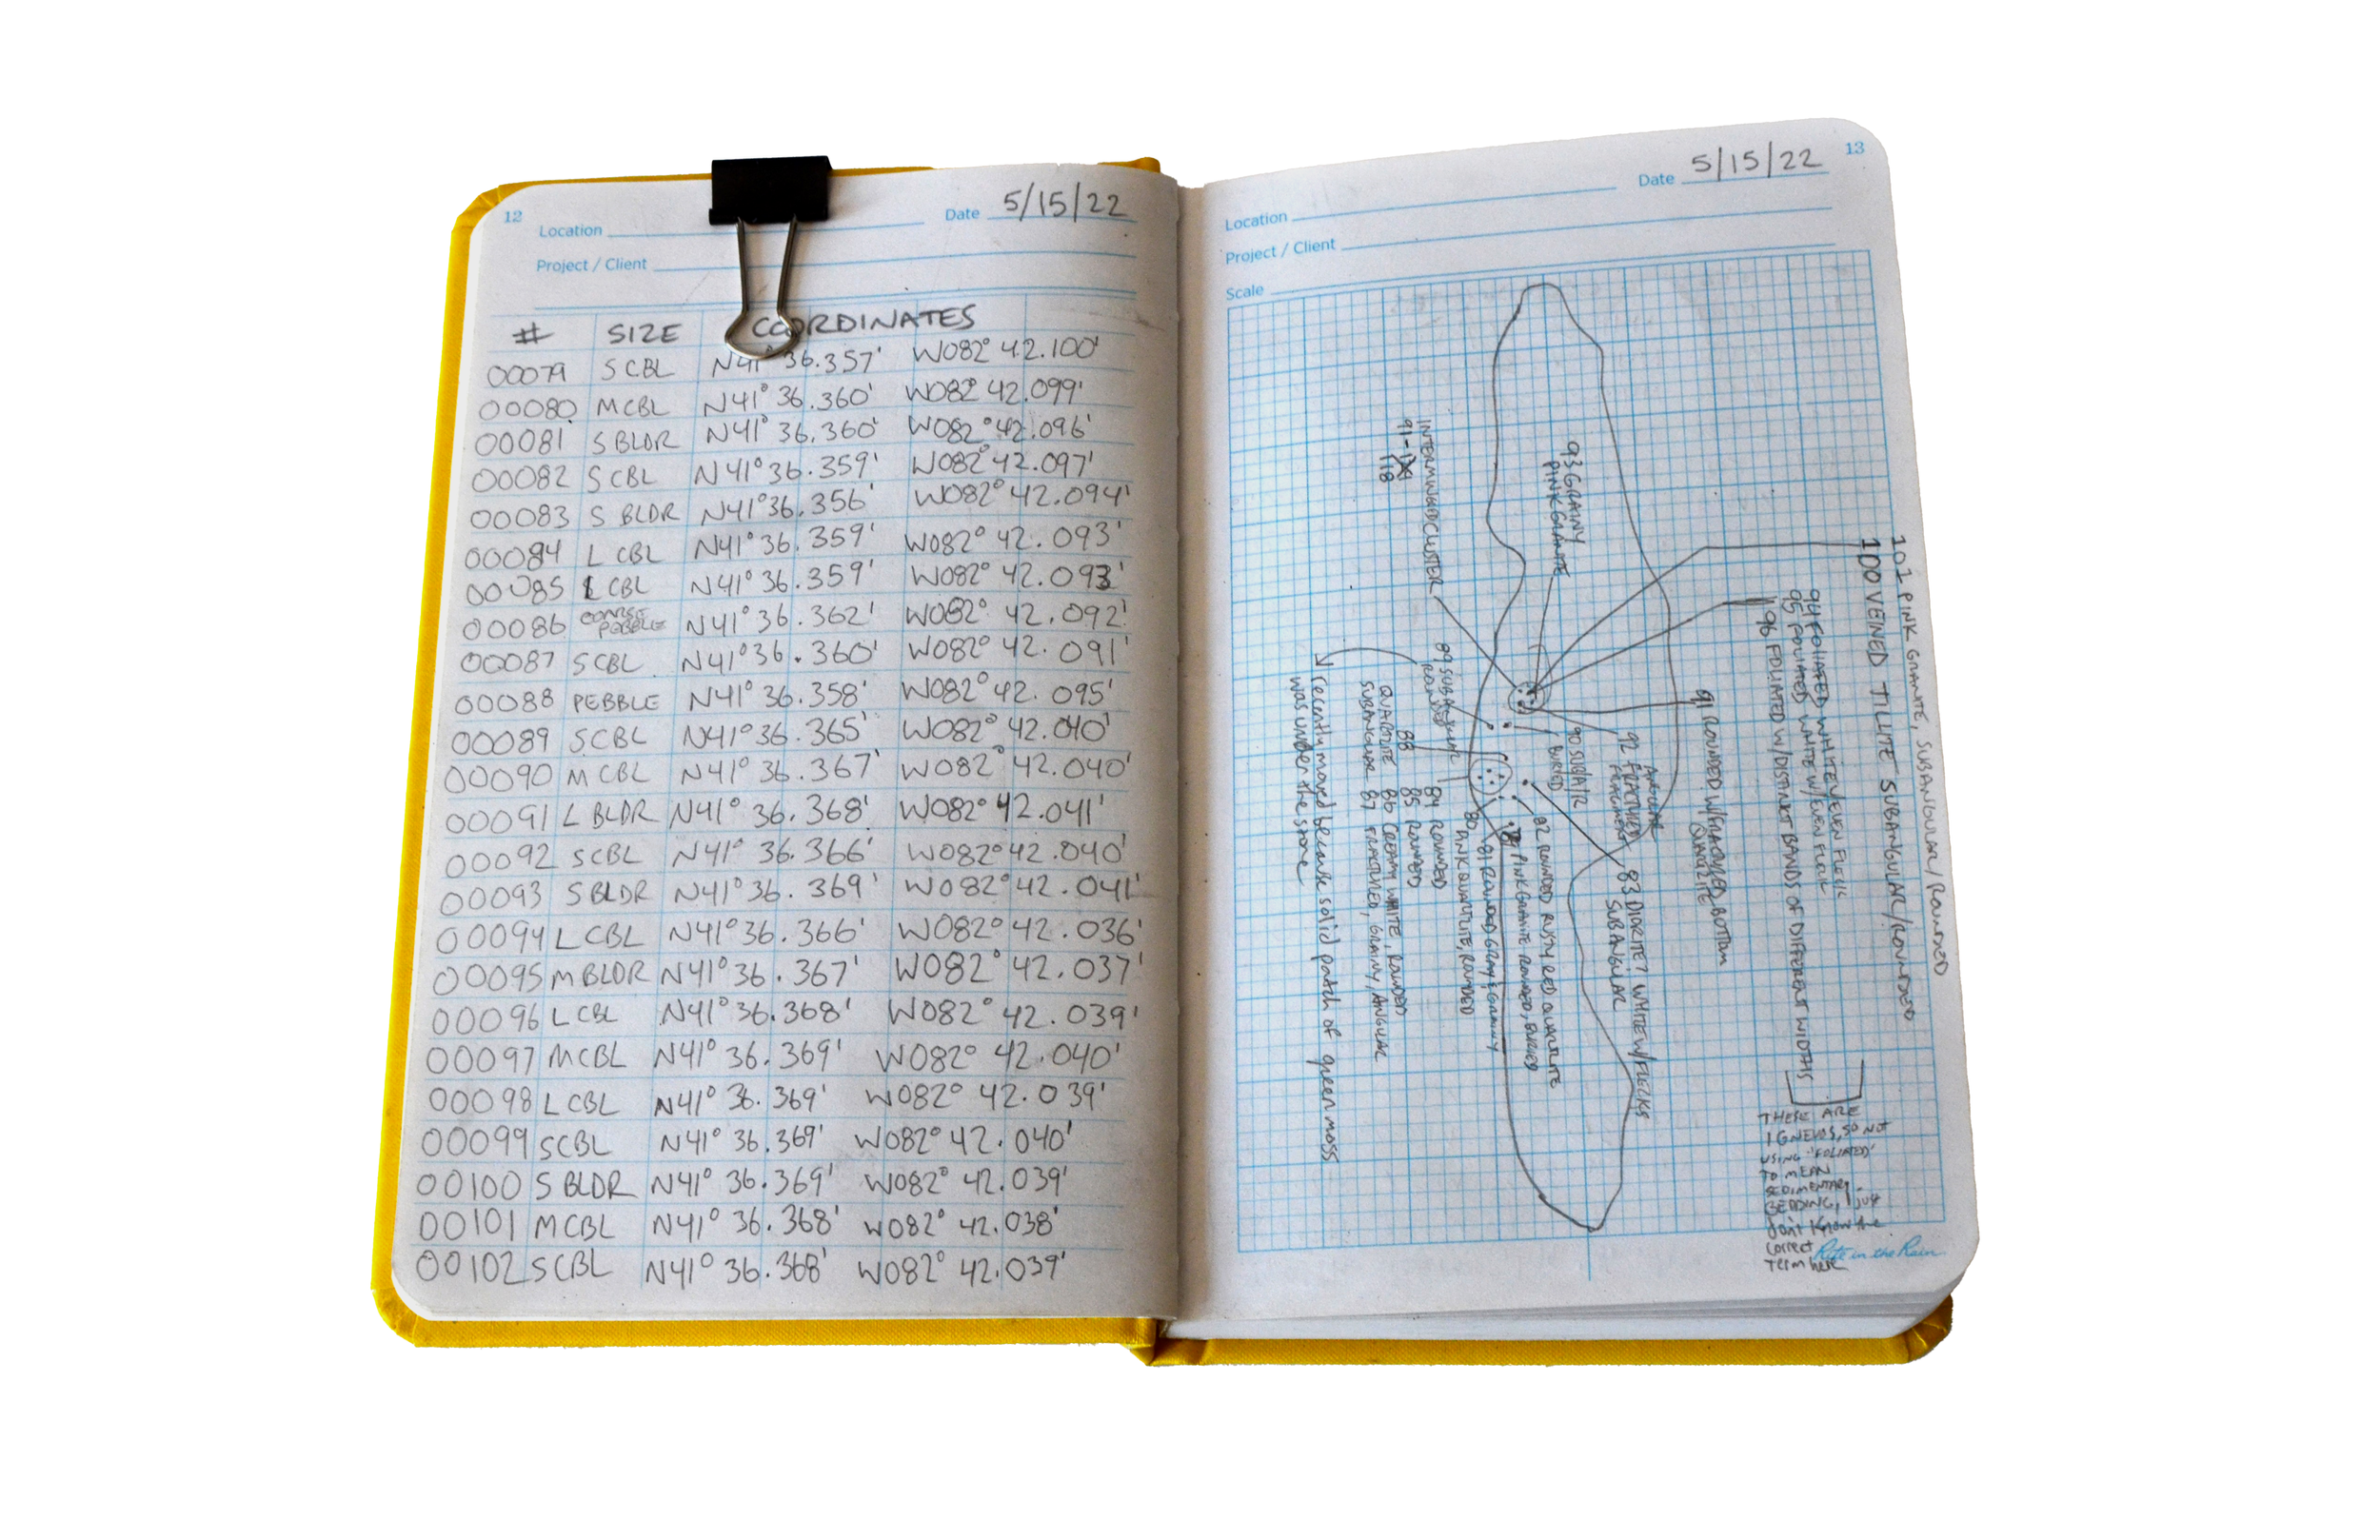 12
Location
Date 5/15/22
Project / Client
# SIZE COORDINATES
00079 S CBL N41° 36.357' W082° 42.100'
00080 M CBL N41° 36.360' W082° 42.099'
00081 S BLDR N41° 36.360' W082° 42.096'
00082 S CBL N41° 36.359' W082° 42.097'
00083 S BLDR N41° 36.356' W082° 42.094'
00084 L CBL N41° 36.359' W082° 42.093'
00085 L CBL N41° 36.359' W082° 42.093'
00086 COARSE PEBBLE N41° 36.362' W082° 42.092'
00087 S CBL N41° 36.360' W082° 42.091'
00088 PEBBLE N41° 36.358' W082° 42.095'
00089 S CBL N41° 36.365' W082° 42.040'
00090 M CBL N41° 36.367' W082° 42.040'
00091 L BLDR N41° 36.368' W082° 42.041'
00092 S CBL N41° 36.366' W082° 42.040'
00093 S BLDR N41° 36.369' W082° 42.041'
00094 L CBL N41° 36.366' W082° 42.036'
00095 M BLDR N41° 36.367' W082° 42.037'
00096 L CBL N41° 36.368' W082° 42.039'
00097 M CBL N41° 36.369' W082° 42.040'
00098 L CBL N41° 36.369' W082° 42.039'
00099 S CBL N41° 36.369' W082° 42.040'
00100 S BLDR N41° 36.369' W082° 42.039'
00101 M CBL N41° 36.368' W082° 42.038'
00102 S CBL N41° 36.368' W082° 42.039'
13
Location
Date 5/15/22
Project / Client
Scale
101 PINK GRANITE, SUBANGULAR/ROUNDED
100 VEINED TILLITE SUBANGULAR/ROUNDED
94 FOLIATED WHITE W/EVEN FLECK
95 FOLIATED WHITE W/EVEN FLECK
96 FOLIATED W/DISTINCT BANDS OF DIFFERENT WIDTHS
THESE ARE
IGNEOUS, SO NOT
USING "FOLIATED"
TO MEAN
SEDIMENTARY
BEDDING, I just
don't know the
correct
term here
91 ROUNDED W/FRACTURED BOTTOM
QUARTZITE
93 GRAINY
PINK GRANITE
92 FRACTURED
FRAGMENT
ANGULAR
83 DIORITE? WHITE W/FLECKS
SUBANGULAR
90 SUBA/R
BURIED
82 ROUNDED RUSTY RED QUARTZITE
PINK GRANITE ROUNDED, BURIED
81 ROUNDED GRAY & GRAINY
80 PINK QUARTZITE, ROUNDED
INTERMINGLED CLUSTER
91-
118
89 SUBANGULAR
ROUNDED
84 ROUNDED
85 ROUNDED
88
86 CREAM WHITE, ROUNDED
QUARTZITE
87 FRACTURED, GRAINY, ANGULAR
SUBANGULAR
recently moved because solid patch of green moss
was under the stone
Rite in the Rain